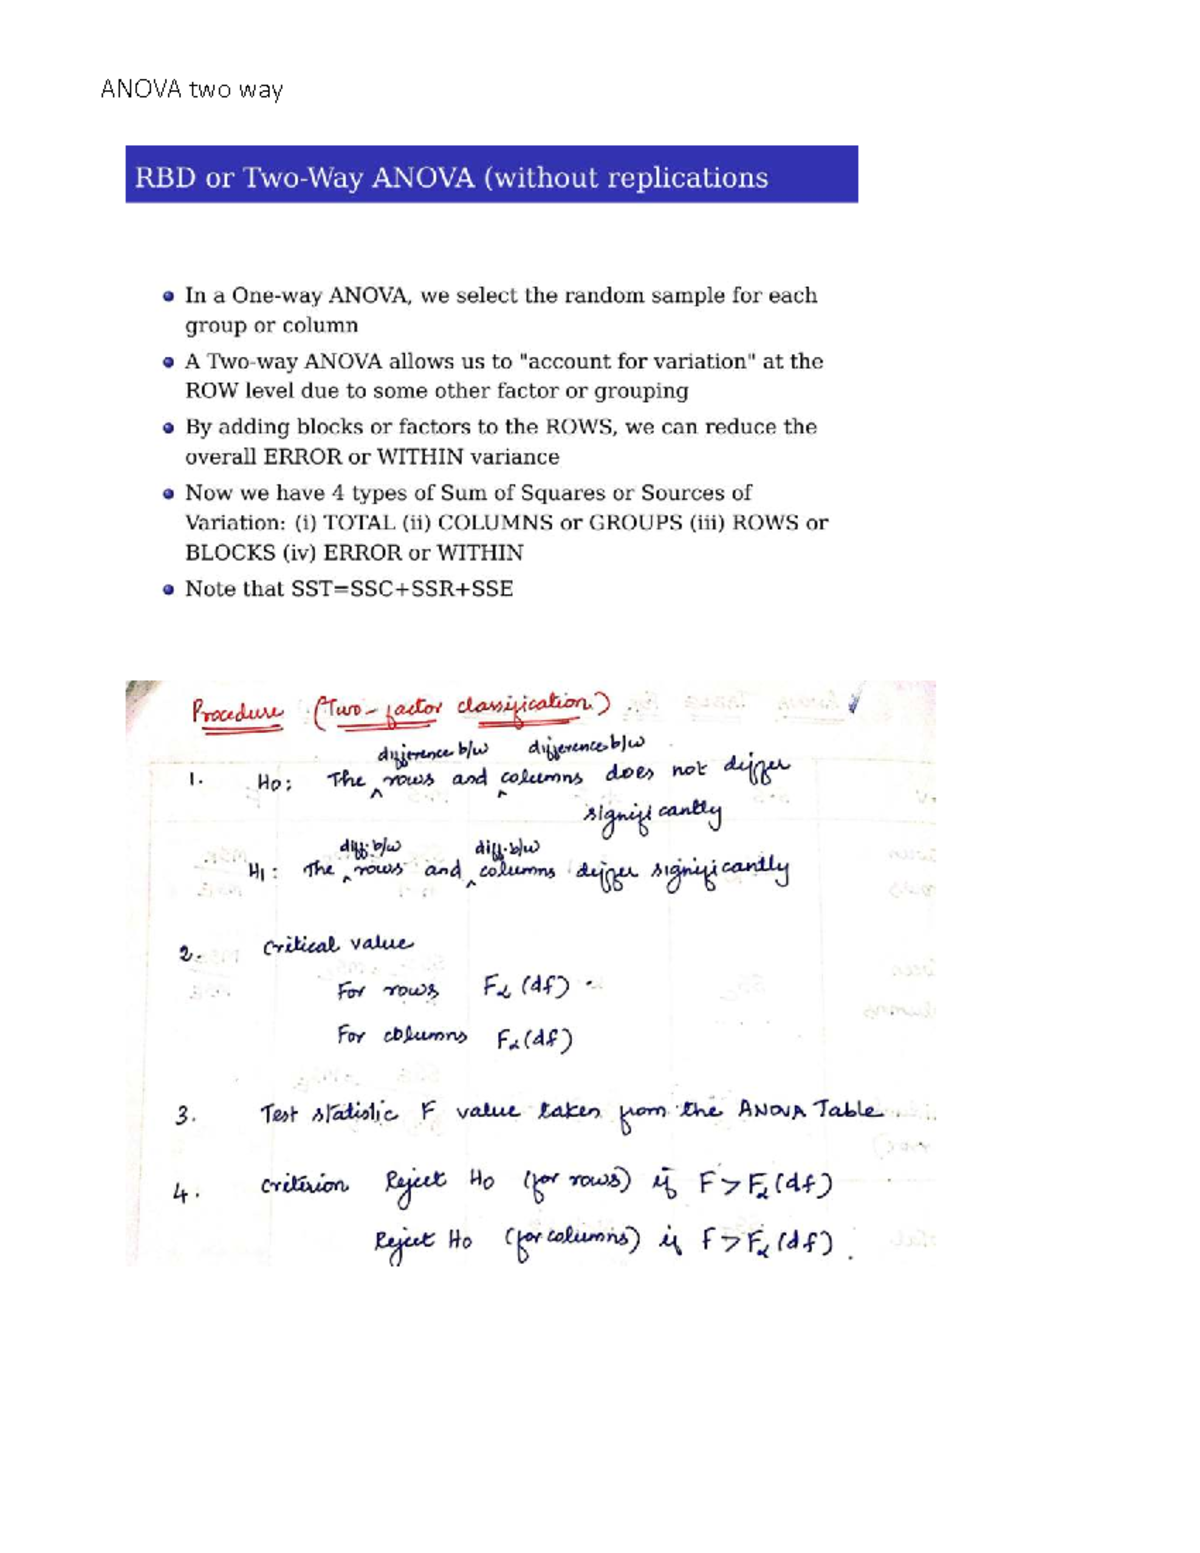 ANOVA two way
RBD or Two-Way ANOVA (without replications
In a One-way ANOVA, we select the random sample for each
group or column
A Two-way ANOVA allows us to "account for variation" at the
ROW level due to some other factor or grouping
By adding blocks or factors to the ROWS, we can reduce the
overall ERROR or WITHIN variance
Now we have 4 types of Sum of Squares or Sources of
Variation: (i) TOTAL (ii) COLUMNS or GROUPS (iii) ROWS or
BLOCKS (iv) ERROR or WITHIN
Note that SST=SSC+SSR+SSE
Procedure (Two-factor classification)
difference b/w difference b/w
1. H0: The ^ rows and ^ columns does not differ
significantly
diff. b/w diff. b/w
H1: The ^ rows and ^ columns differ significantly
2. Critical value
For rows Fα (df)
For columns Fα (df)
3. Test statistic F value taken from the ANOVA Table
4. Criterion Reject H0 (for rows) if F > Fα (df)
Reject H0 (for columns) if F > Fα (df).